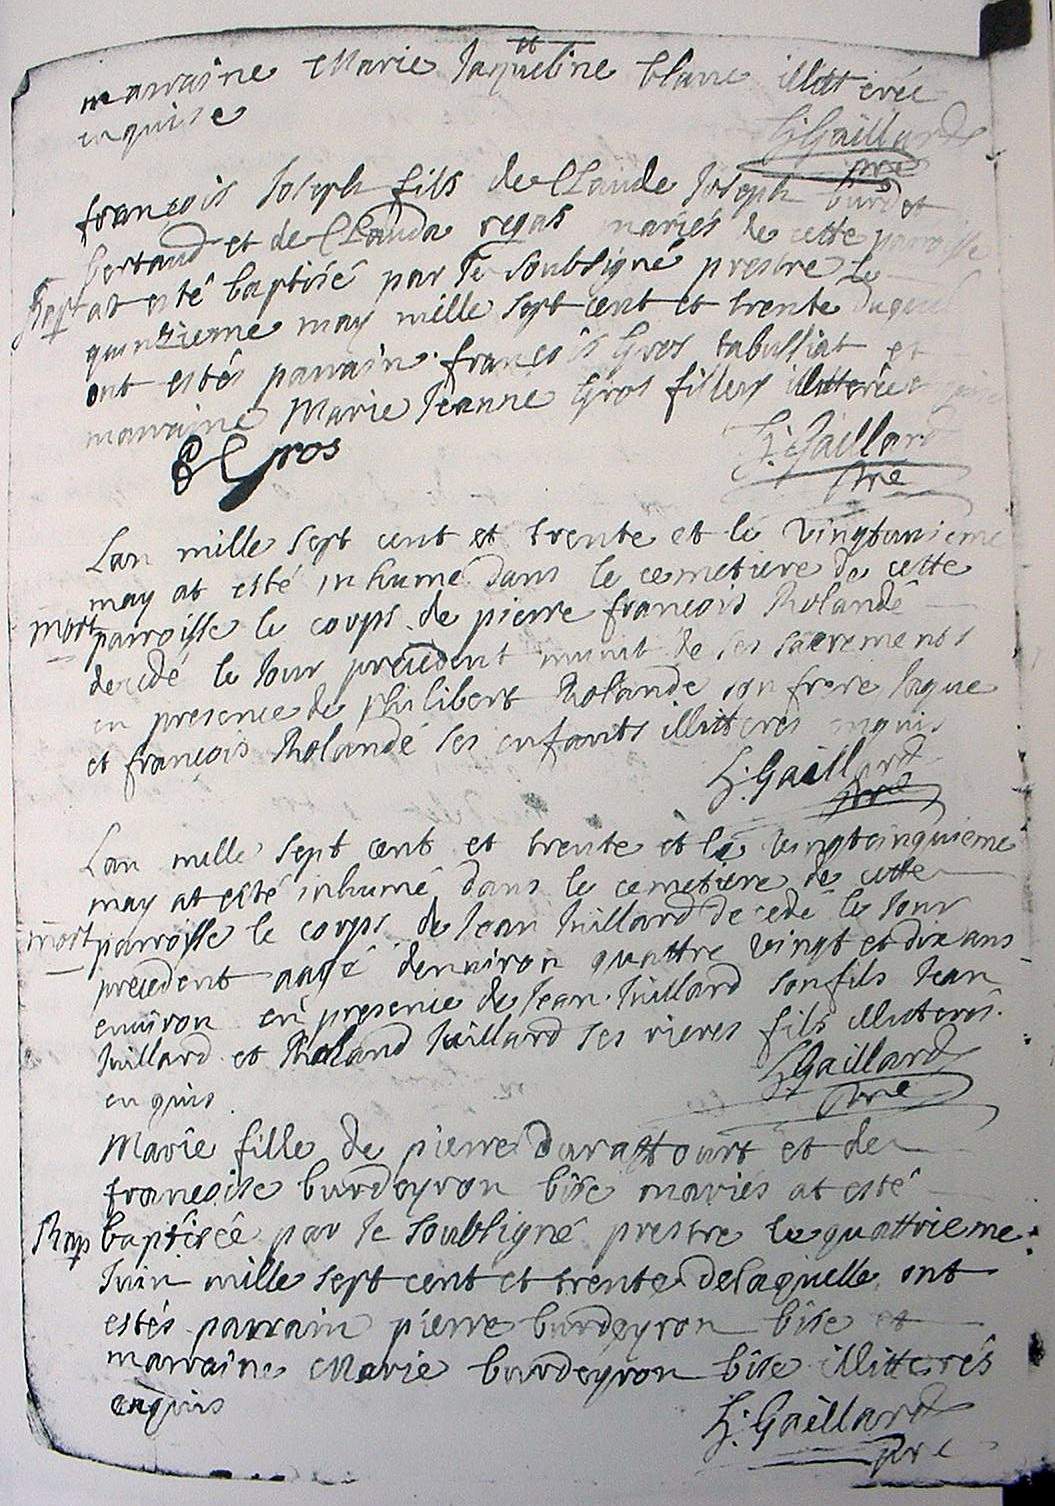 marraine Marie Jaqueline blanc illitterée
enquise
h: Gaillard
pre
françois Joseph fils de Claude Joseph burdet
bertaud et de Clauda regas mariés de cette parroisse
Bapt at esté baptisé par Je soubsigné prestre le
quinzieme may mille sept cent et trente duquel
ont estés parrain françois Gros et
marraine Marie Jeanne Gros illitterée
Gros
h: Gaillard
pre
Lan mille sept cent et trente et le vingtunieme
may at esté inhumé dans le cemetiere de cette
mort parroisse le corps de pierre françois Rolande
decedé le Jour precedent munit de ses sacrements
en presence de philibert Rolande son frere Jaque
et françois Rolande ses enfants illitteres enquis
h: Gaillard
pre
Lan mille sept cent et trente et le vingtcinquieme
may at esté inhumé dans le cemetiere de cette
mort parroisse le corps de Jean Juillard decedé le Jour
precedent aagé denviron quattre vingt et dix ans
environ en presence de Jean Juillard son fils Jean
Juillard et Roland Juillard ses fils illiteres
enquis
h: Gaillard
pre
Marie fille de pierre Duraffourt et de
françoise burdeyron bise mariés at esté
Bap baptisée par Je soubsigné prestre le quattrieme
Juin mille sept cent et trente delaquelle ont
estés parrain pierre burdeyron bise et
marraine Marie burdeyron bise illitterés
enquis
h: Gaillard
pre